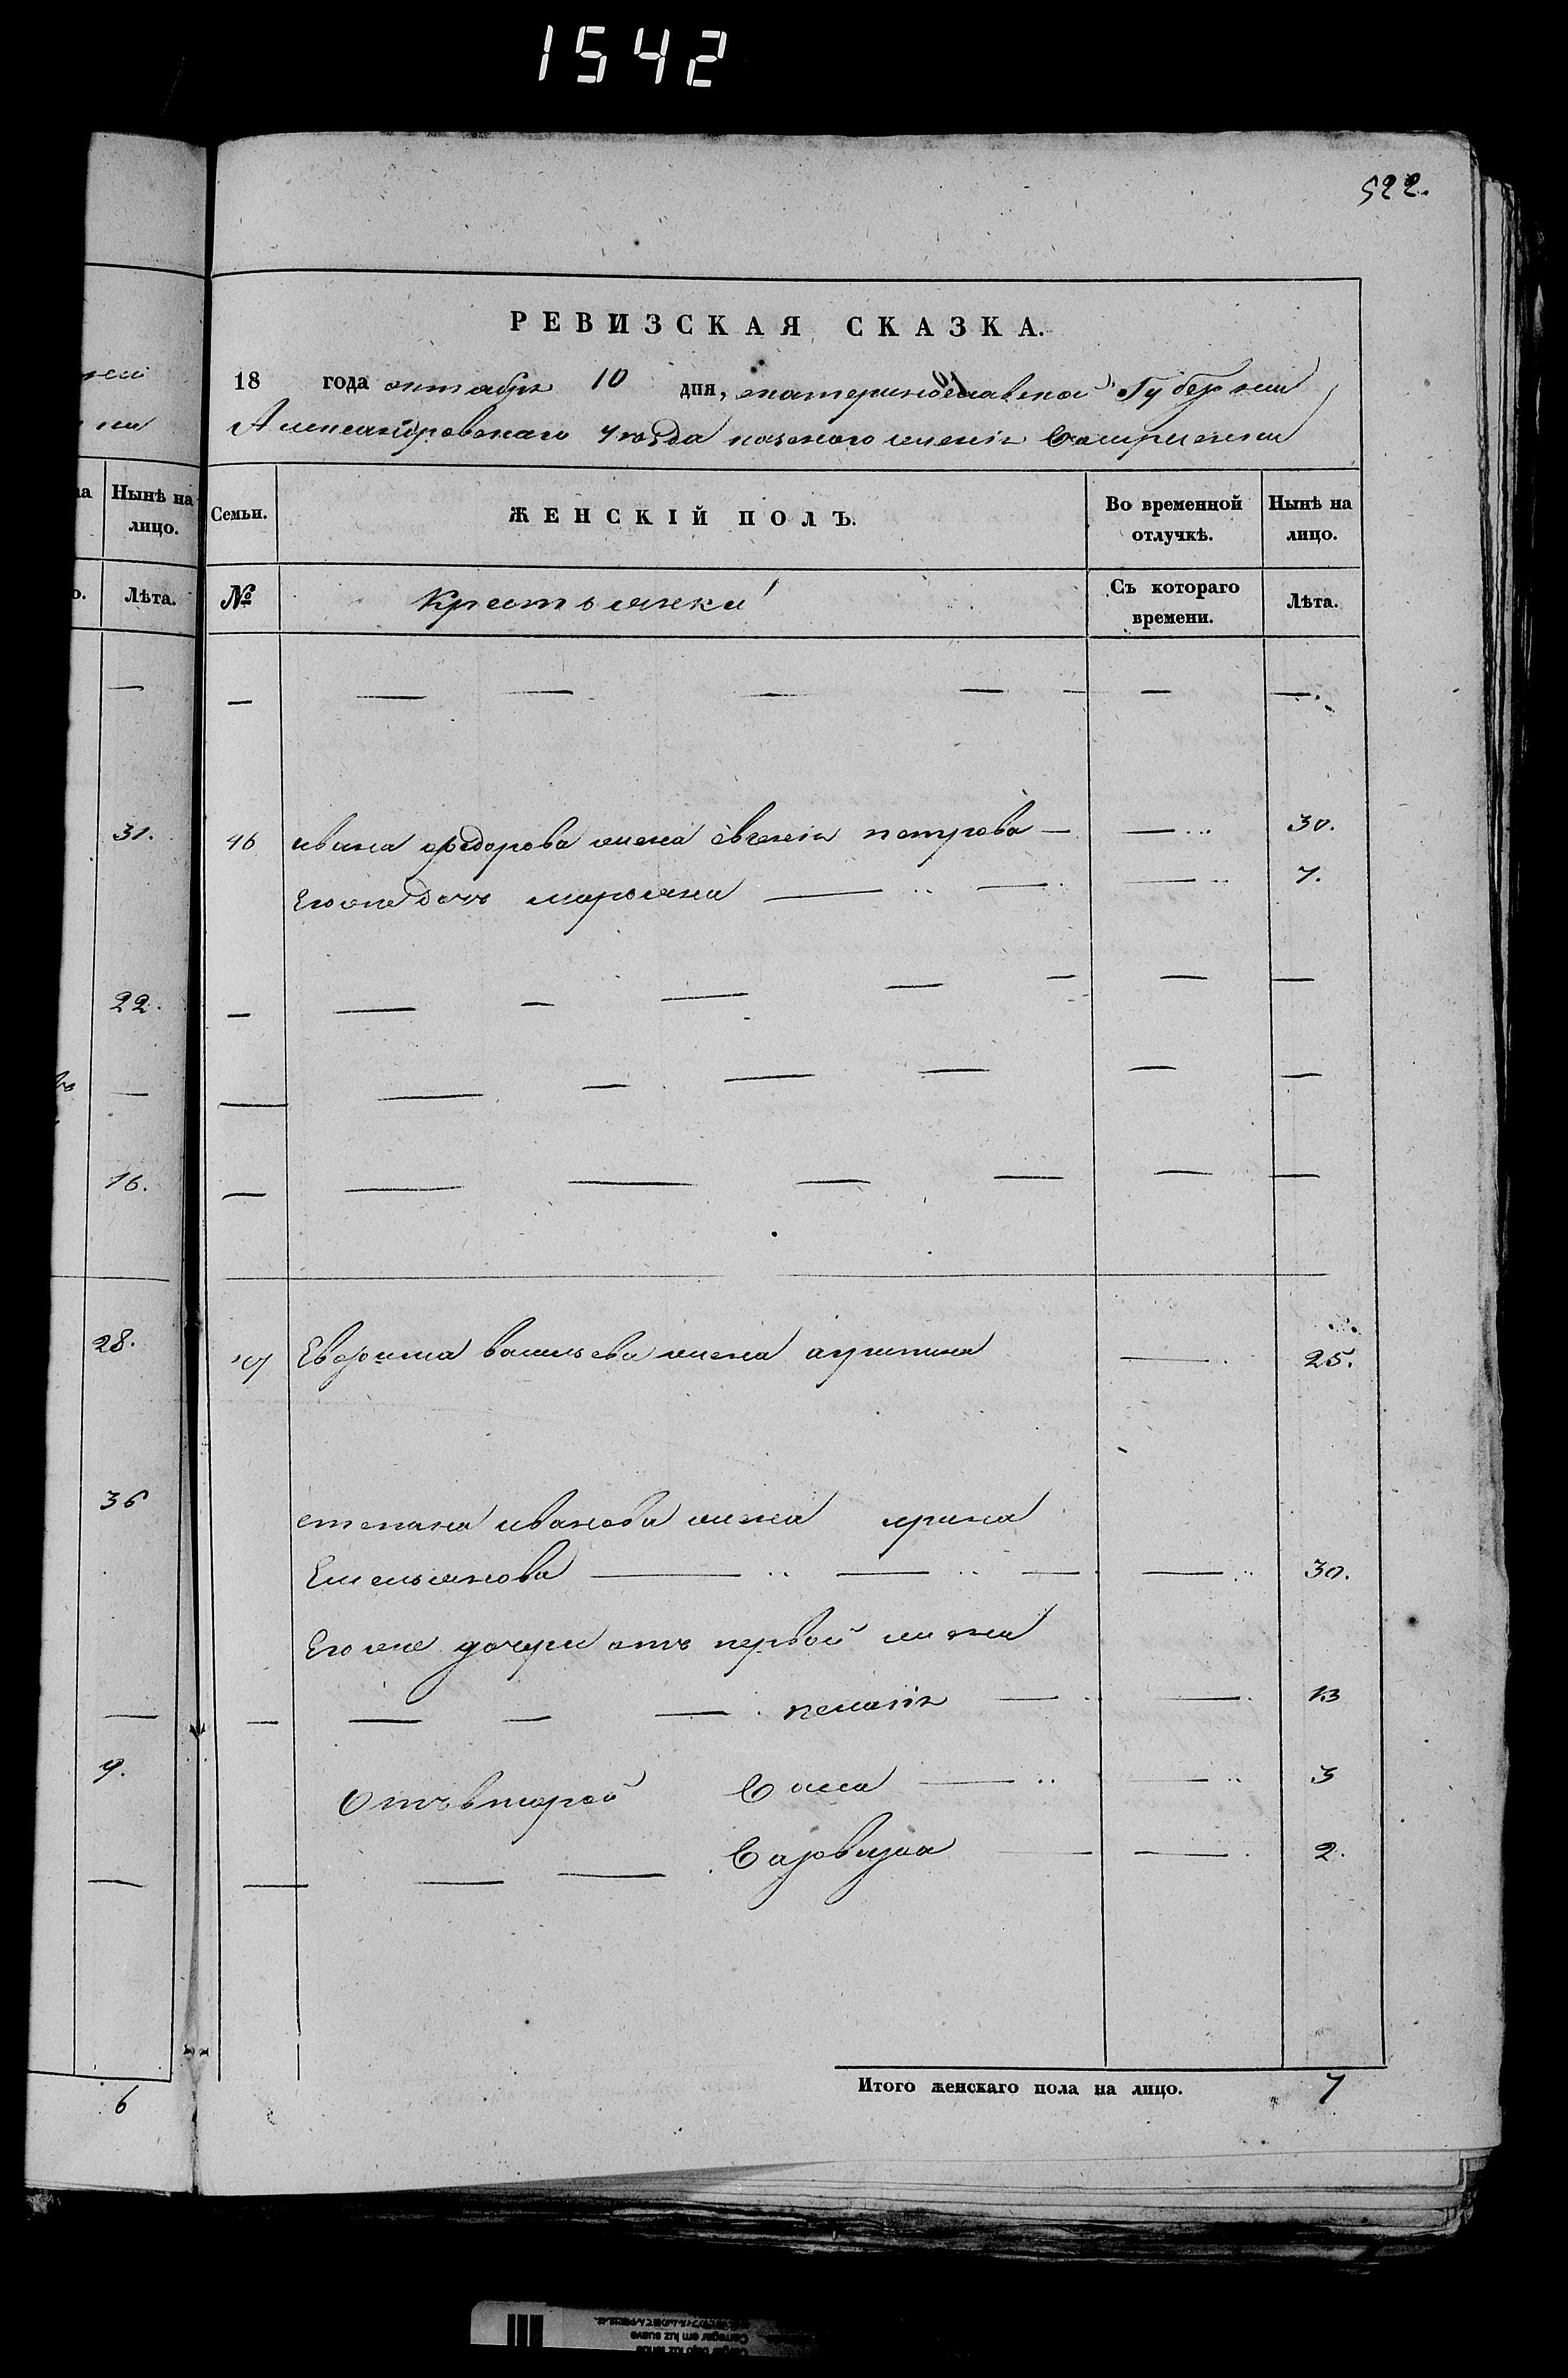 1542
522.
РЕВИЗСКАЯ СКАЗКА.
18 года октября 10 дня, екатеринославской Губернии
Александровскаго уезда имения
на
Нынѣ на
лицо.
Лѣта.
Семьи.
ЖЕНСКІЙ ПОЛЪ.
Во временной
отлучкѣ.
Нынѣ на
лицо.
№
Крестьянки
Съ котораго
времени.
Лѣта.
31.
46 ивана федорова жена евгения петрова — — 30.
Его же дочь марияна — — — 7.
22.
16.
28.
47 Евфима васильева жена агрипина — 25.
36
степана иванова жена ирина
Емельянова — — — — 30.
Его же дочери отъ первой жены
— — — — пелагия — — 13
9.
Отъ второй — — 3
— — — — — 2.
Итого женскаго пола на лицо. 7
6